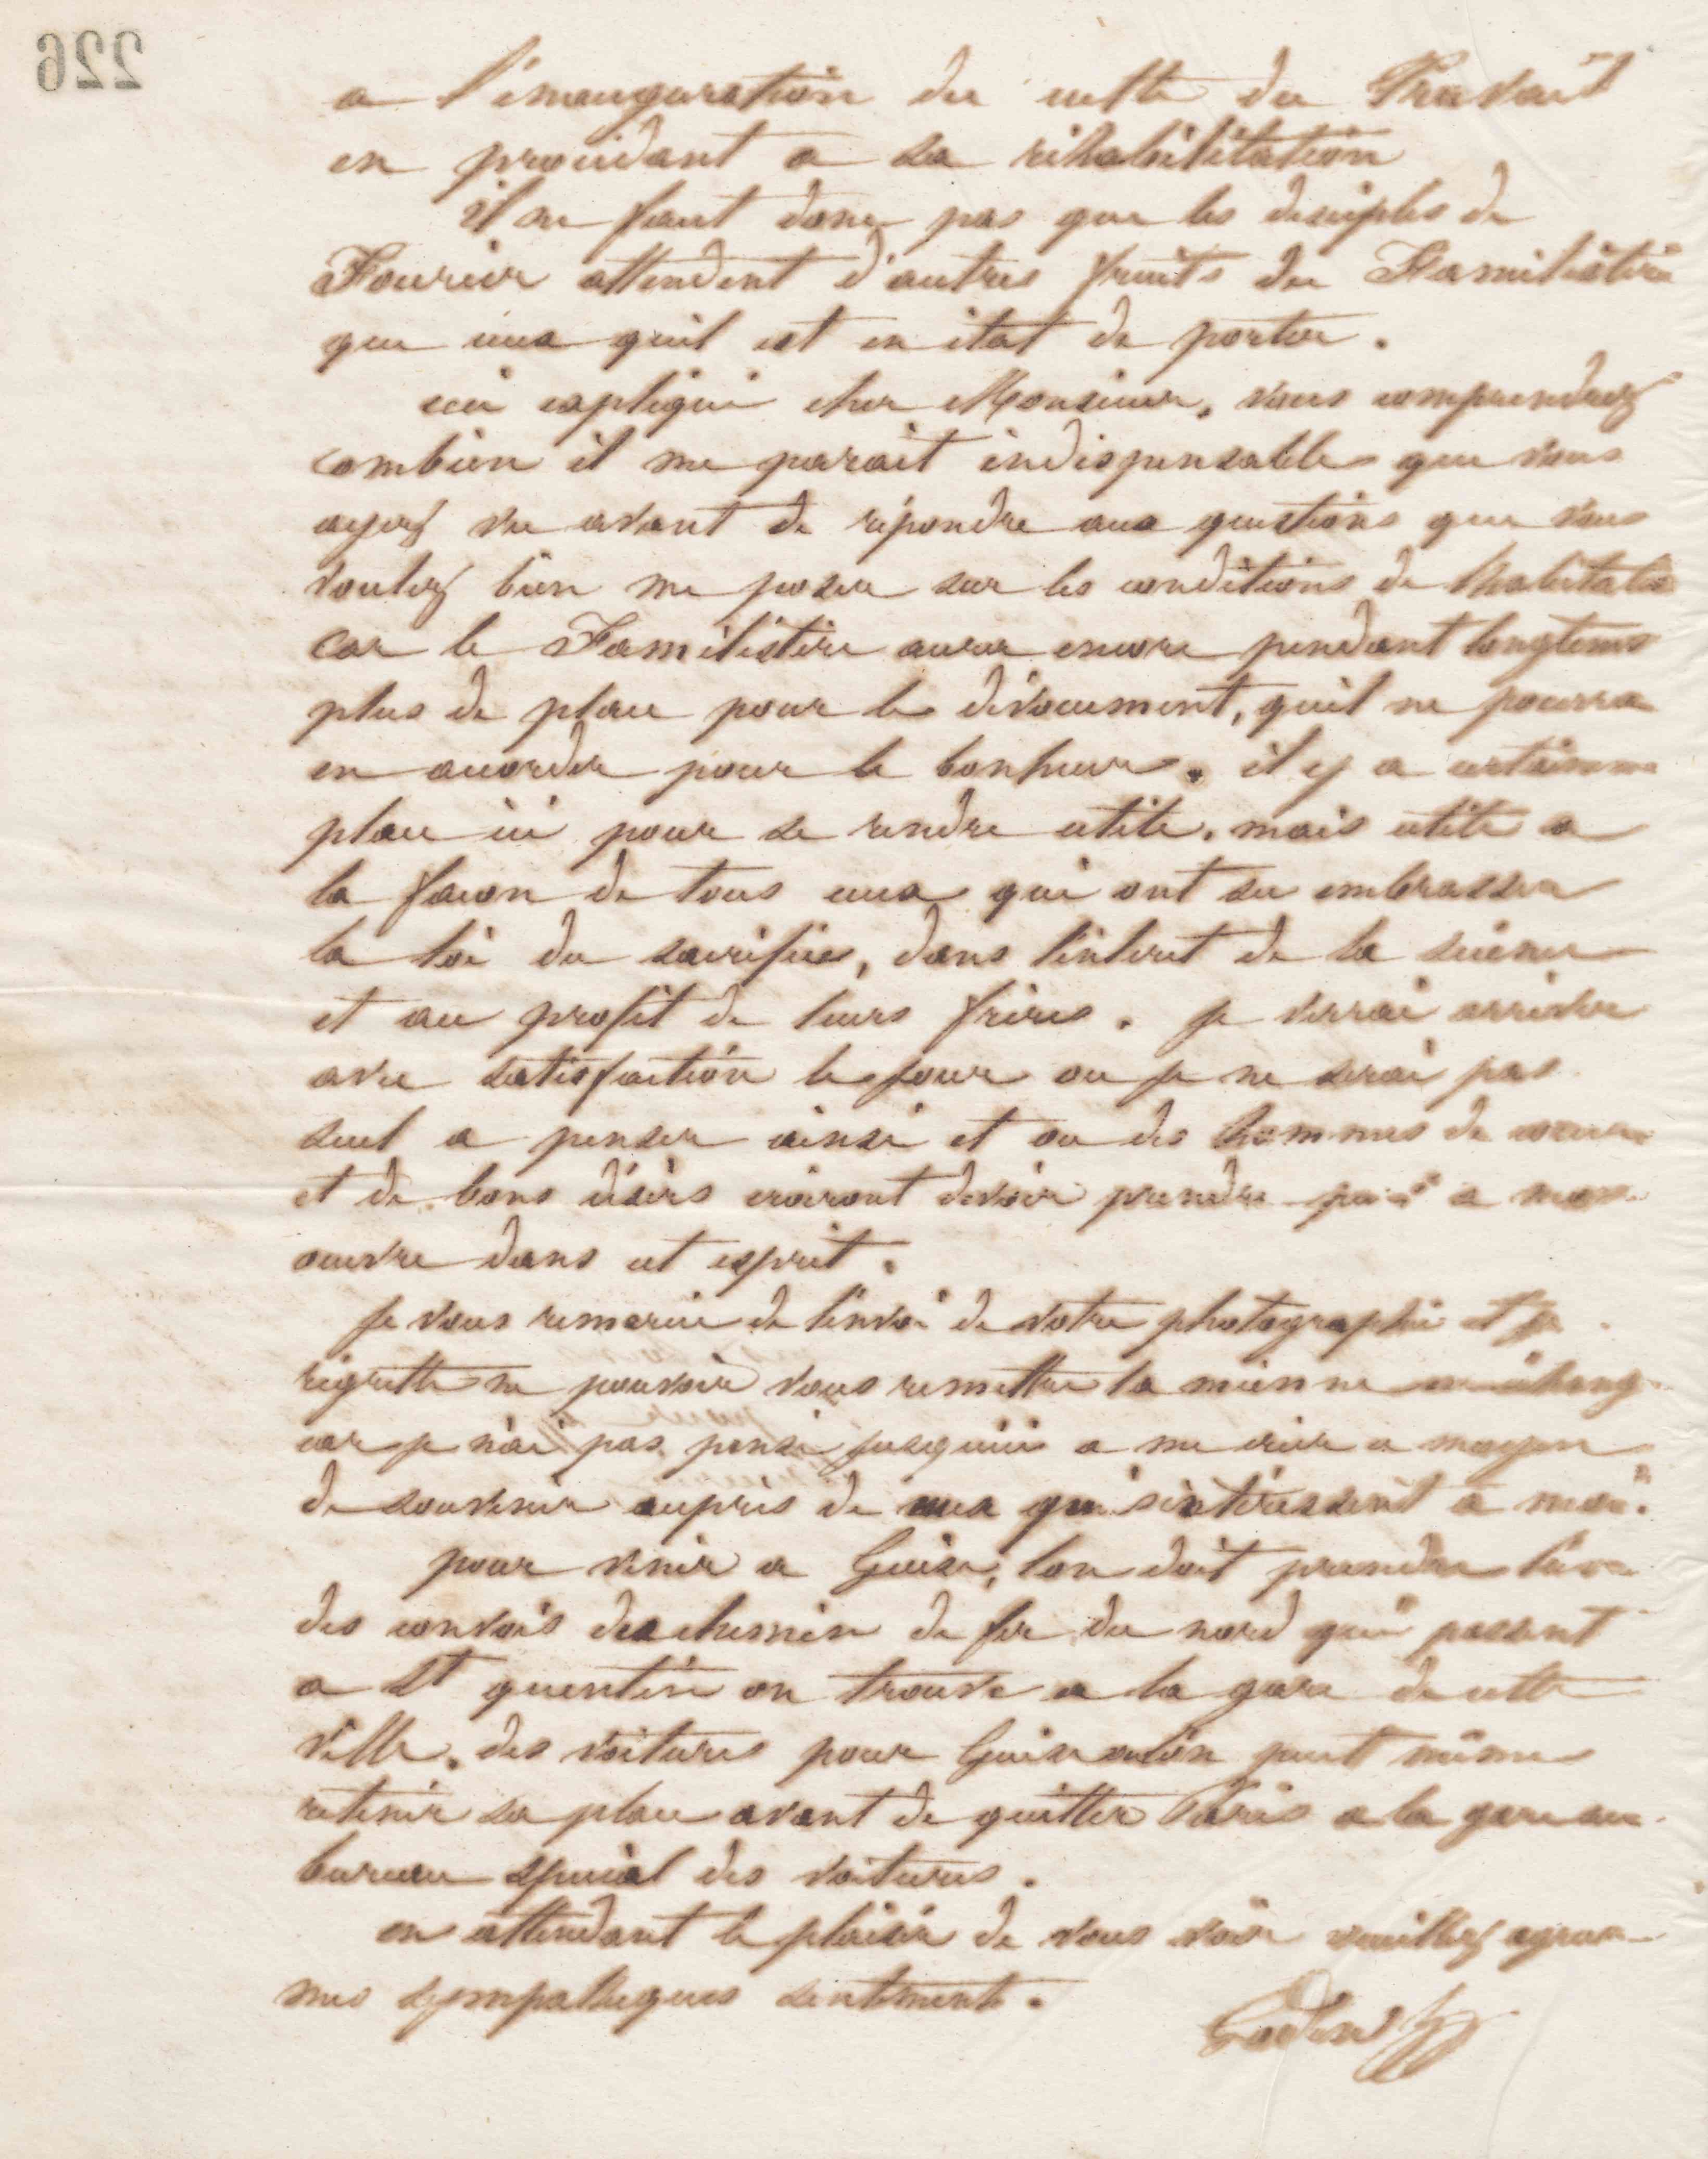 226
a l'inauguration du culte du Travail
en procédant a sa réhabilitation
il ne faut donc pas que les disciples de
Fourier attendent d'autres fruits du Familistère
que ceux quil est en état de porter.
ceci expliqué cher Monsieur, vous comprendrez
combien il me parait indispensable que vous
ayez vu avant de répondre aux questions que vous
voulez bien me poser sur les conditions de lhabitation
car le Familistère aura encore pendant longtems
plus de place pour le dévouement, quil ne pourra
en accorder pour le bonheur. il y a certainem
place ici pour se rendre utile, mais utile a
la facon de tous ceux qui ont su embrasser
la loi du sacrifice, dans lintéret de la science
et au profit de leurs frères. je verrai arriver
avec satisfaction le jour ou je ne serai pas
seul a penser ainsi et ou des hommes de cœur
et de bons désirs croiront devoir prendre part a mon
œuvre dans cet esprit.
Je vous remercie de lenvoi de votre photographie et je
regrette ne pouvoir vous remettre la mienne en échang
car je n'ai pas pensé jusquici a me créer ce moyen
de souvenir auprès de ceux qui s'intéressent a moi.
pour venir a Guise, lon doit prendre lun
des convois du chemin de fer du nord qui passent
a St quentin on trouve a la gare de cette
ville, des voitures pour Guise ou lon peut même
retenir sa place avant de quitter Paris a la gare au
bureau spécial des voitures.
en attendant le plaisir de vous voir veuillez agréer
mes sympathiques sentiments.
Godin